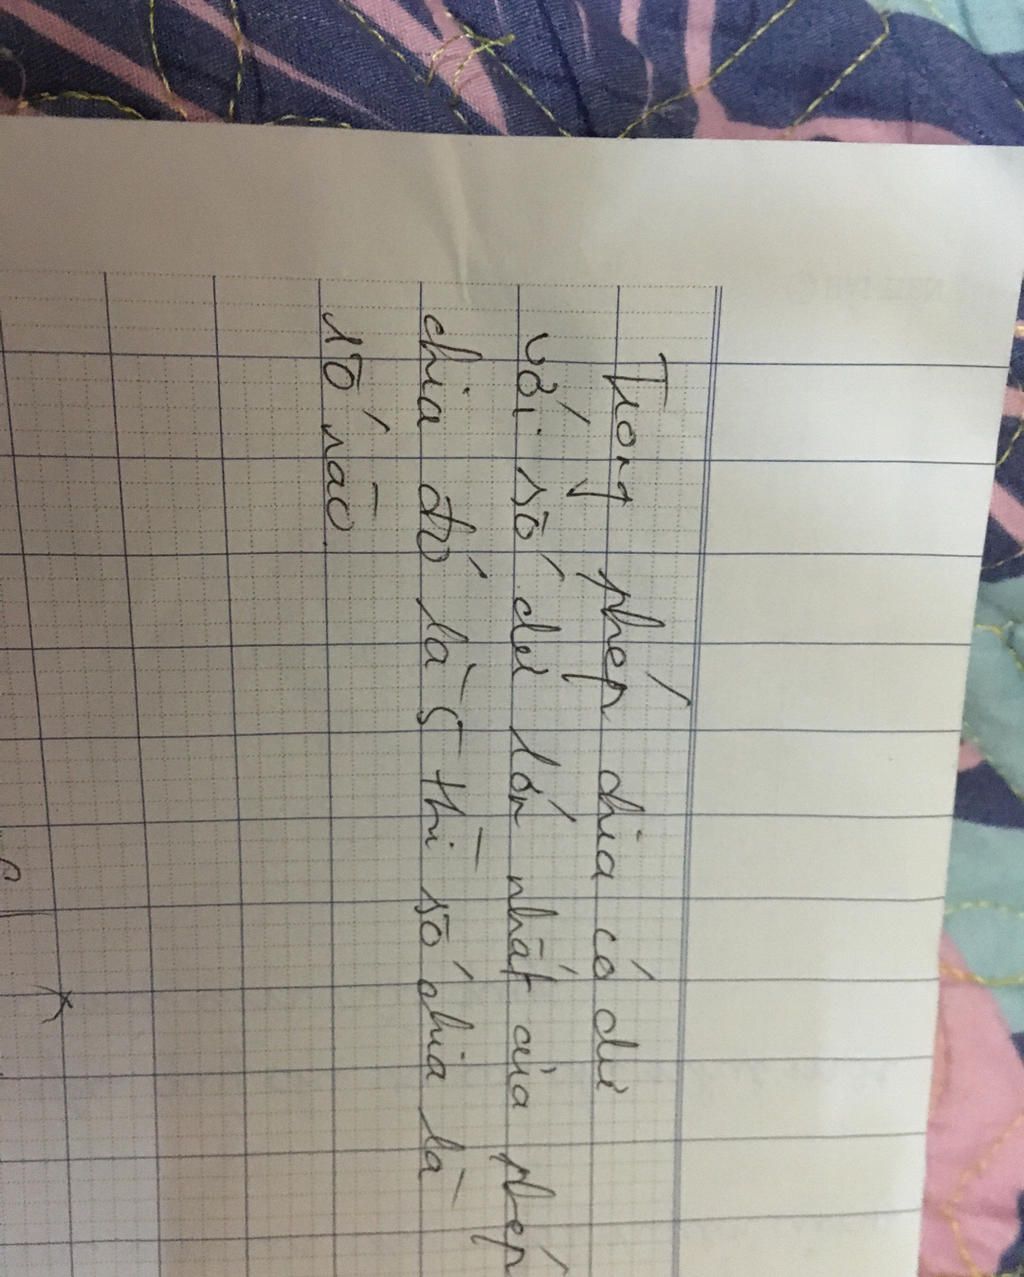 Trong phép chia có dư
với số dư lớn nhất của phép
chia đó là 5 thì số chia là
số nào.